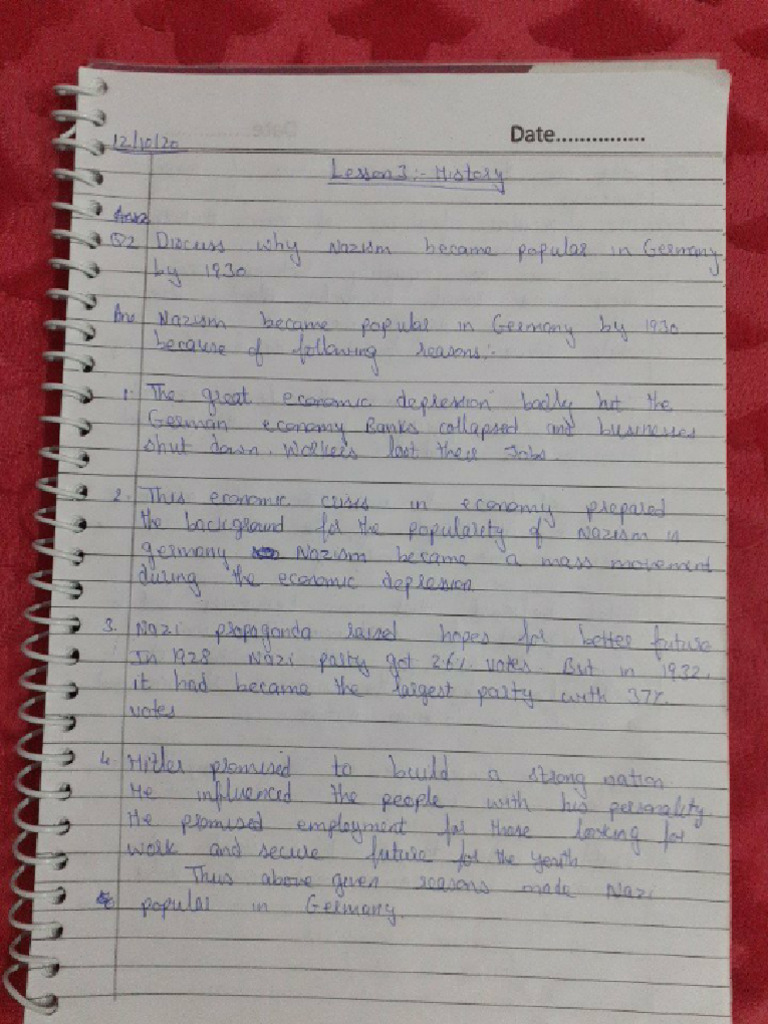 Date...............
12/10/20
Lesson 3:- History
Q2 Discuss why Nazism became popular in Germany
by 1930
Ans Nazism became popular in Germany by 1930
because of following reasons:-
1. The great economic depression badly hit the
German economy Banks collapsed and businesses
shut down. Workers lost their Jobs.
2. This economic crisis in economy prepared
the background for the popularity of Nazism in
germany Nazism became a mass movement
during the economic depression
3. Nazi propaganda raised hopes for better future
In 1928 Nazi party got 2.6% votes But in 1932,
it had became the largest party with 37%
votes
4. Hitler promised to build a strong nation
He influenced the people with his personality
He promised employment for those looking for
work and secure future for the youth
Thus above given reasons made Nazi
popular in Germany.